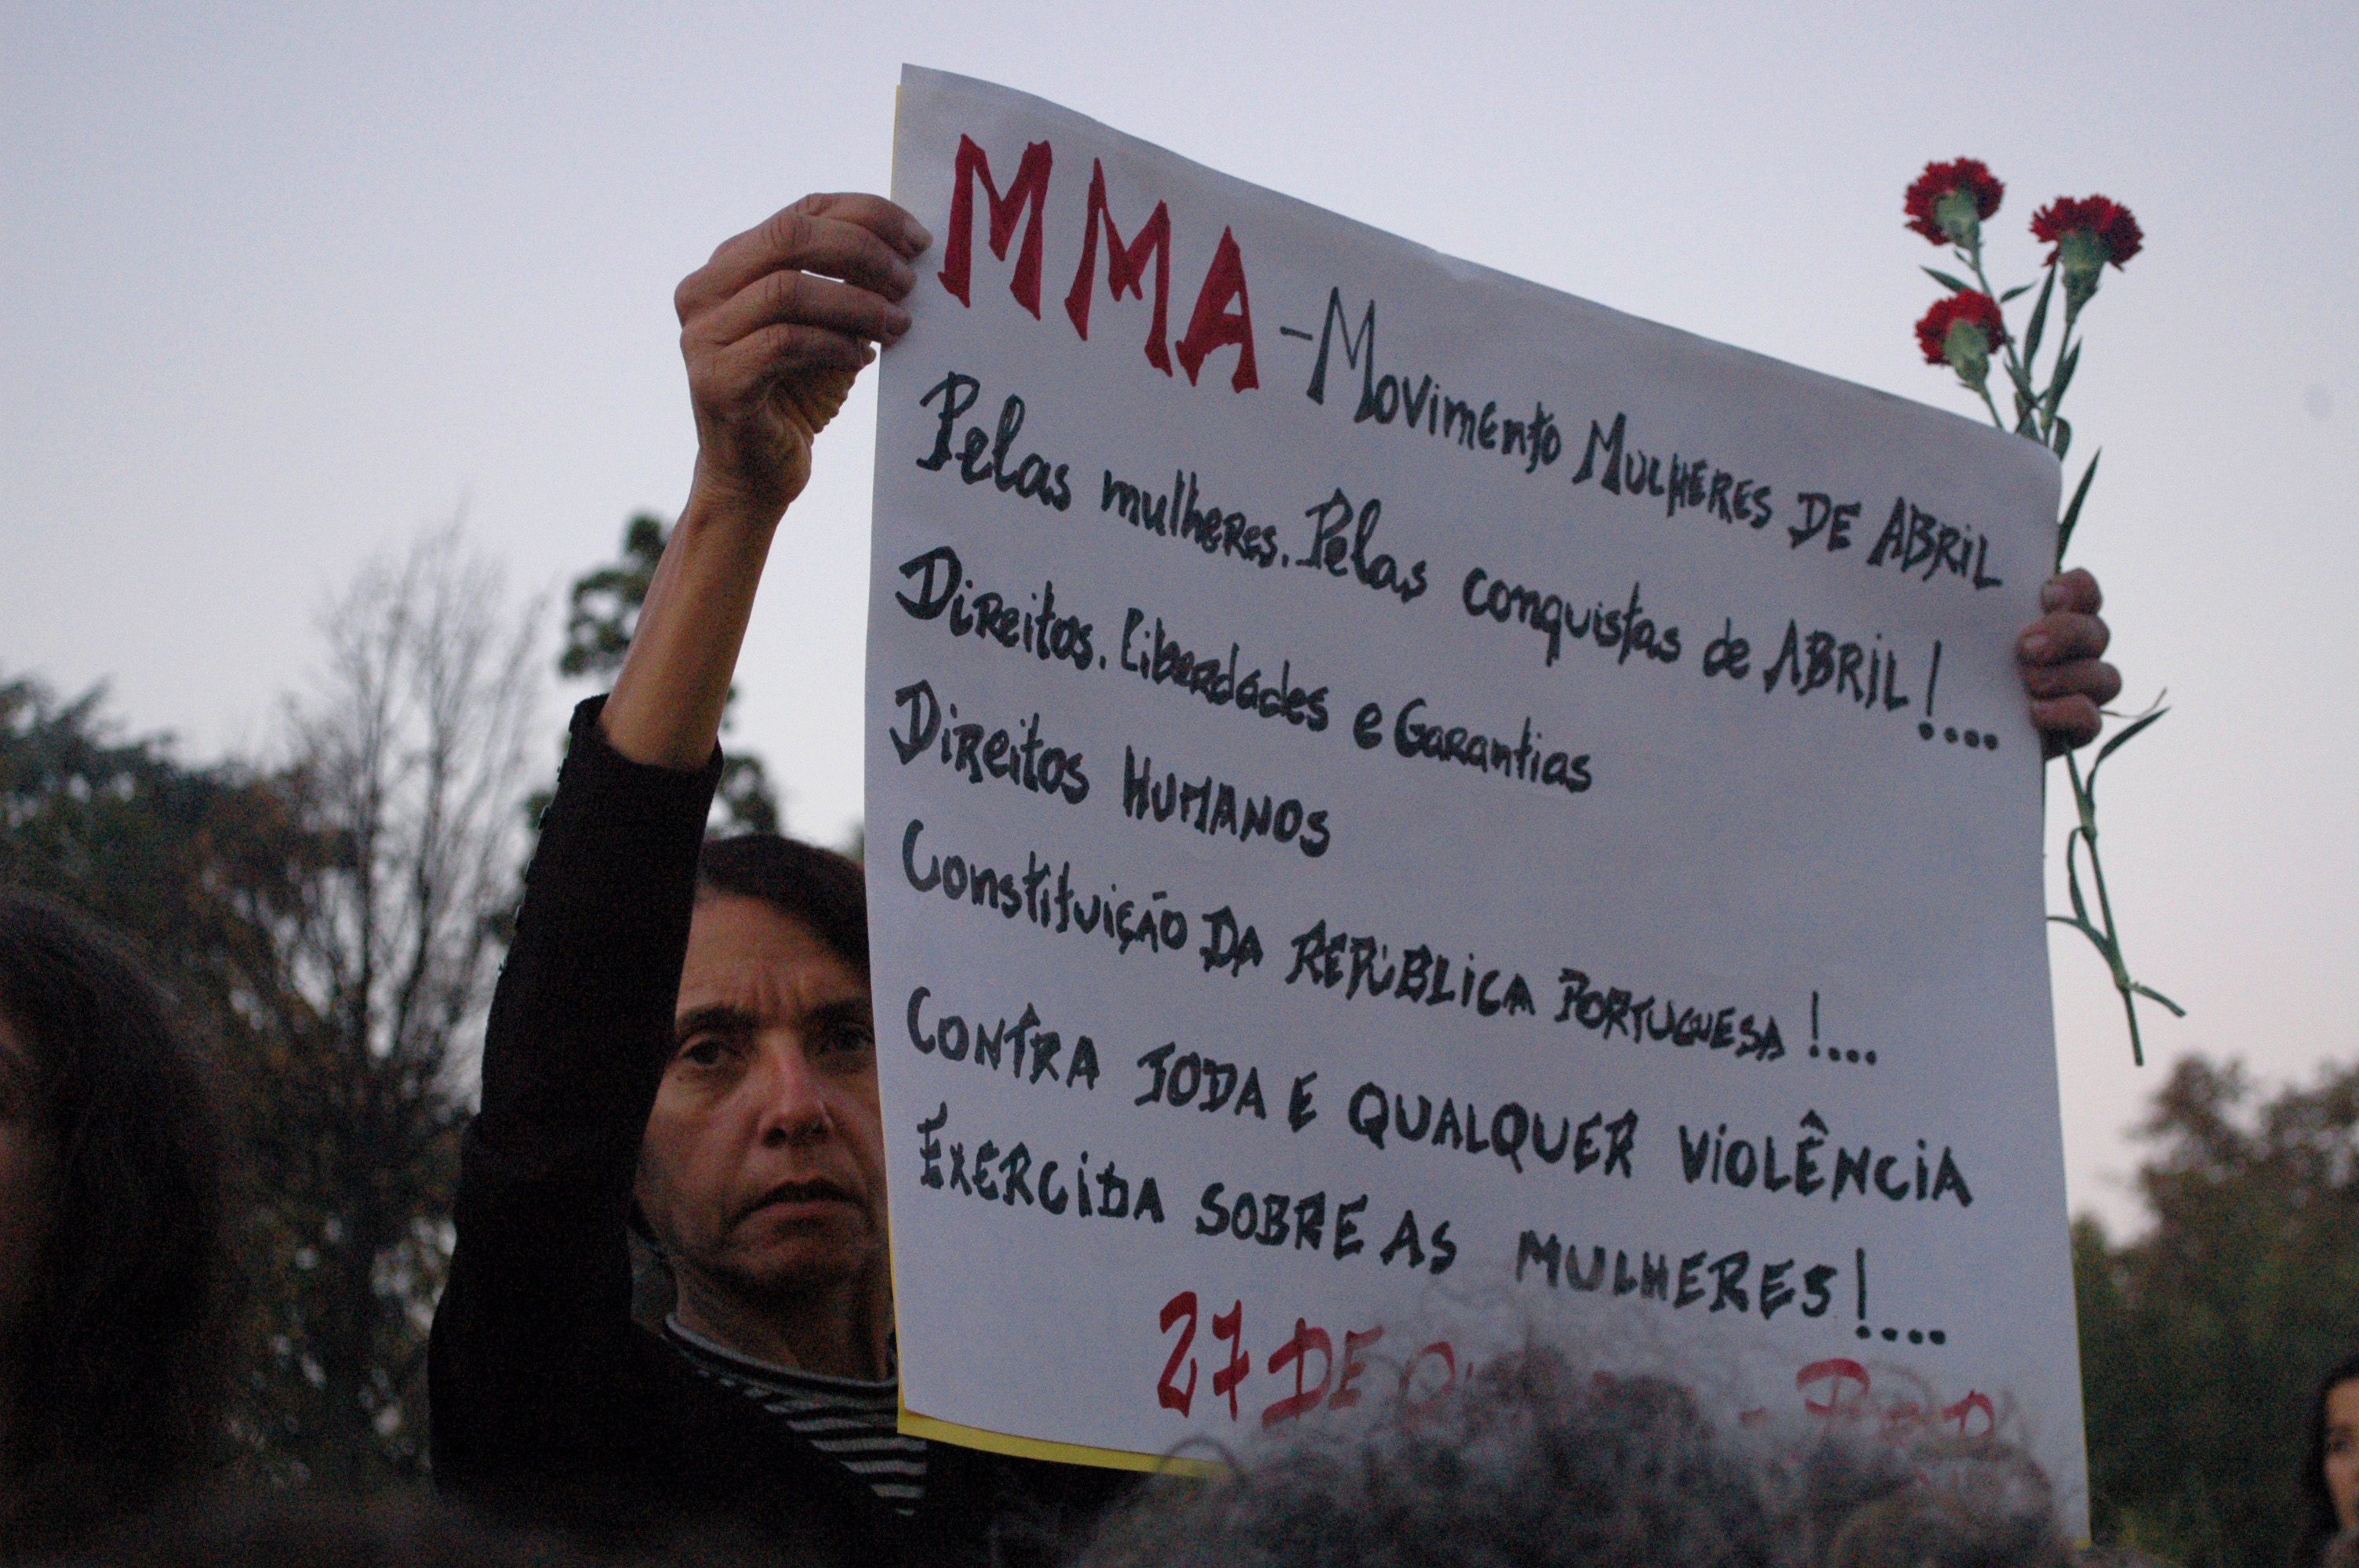 MMA - Movimento Mulheres de Abril
Pelas mulheres. Pelas conquistas de ABRIL!....
Direitos. Liberdades e Garantias
Direitos HUMANOS
Constituição DA REPÚBLICA PORTUGUESA!....
CONTRA TODA E QUALQUER VIOLÊNCIA
EXERCIDA SOBRE AS MULHERES!....
27 DE